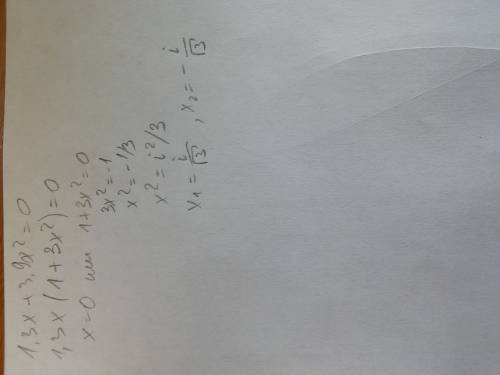 1,3x+3,9x²=0
1,3x(1+3x²)=0
x=0 или 1+3x²=0
3x²=-1
x²=-1/3
x²=i²/3
x₁=i/√3, x₂=-i/√3